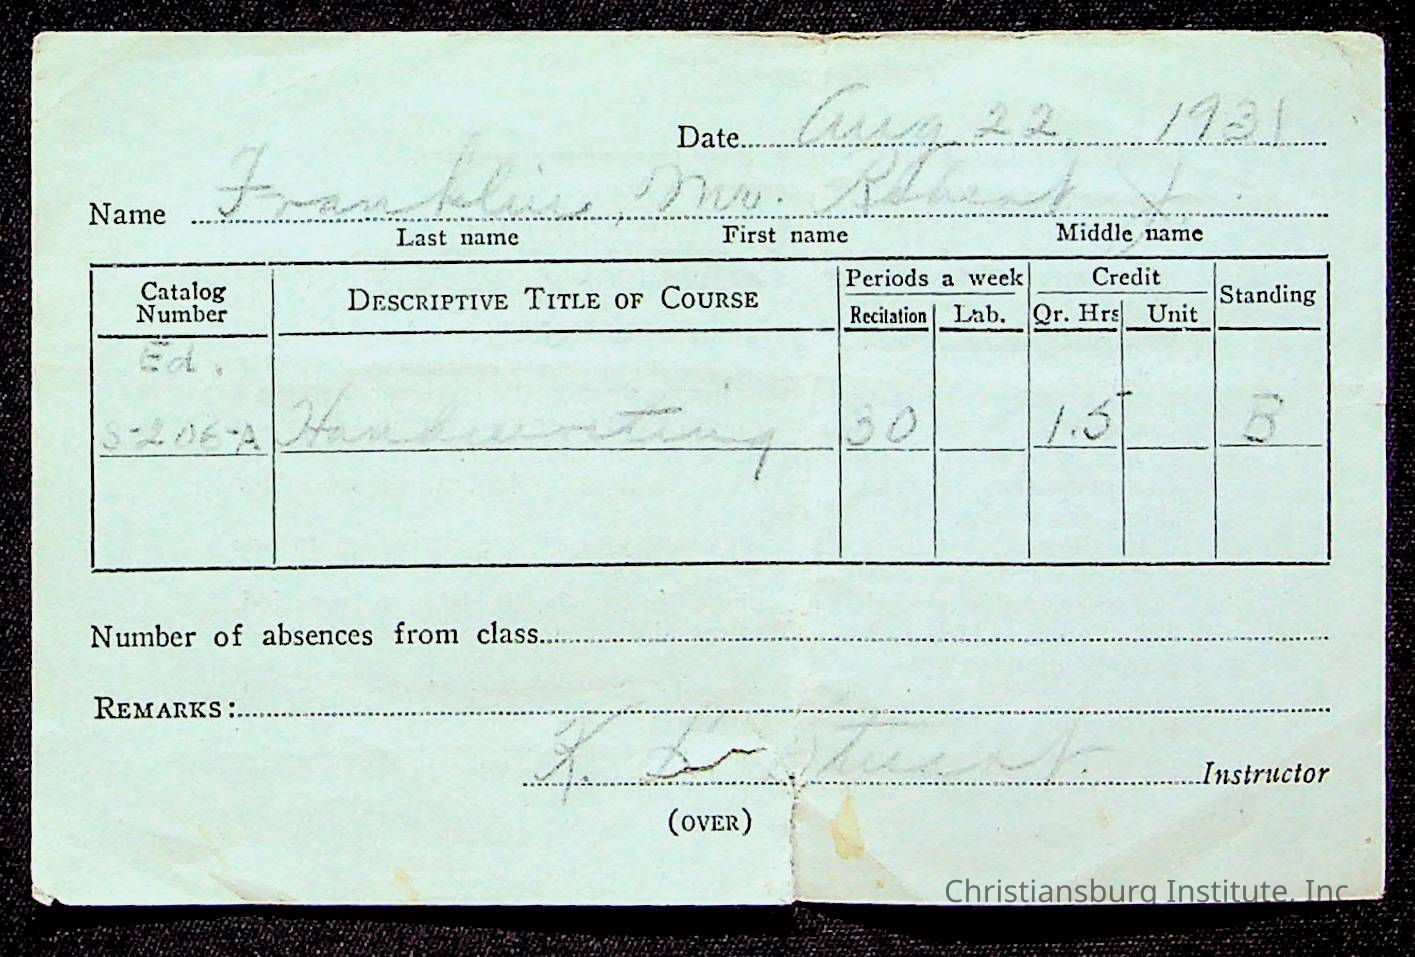 Date Aug 22 1931
Name Franklin, Mr. Robert J.
Last name First name Middle name
Catalog Number DESCRIPTIVE TITLE OF COURSE Periods a week Credit Standing
Recitation Lab. Qr. Hrs Unit
Ed.
S-206-A Handwriting 30 1.5 B
Number of absences from class
REMARKS:
K. Stuart Instructor
(OVER)
Christiansburg Institute, Inc